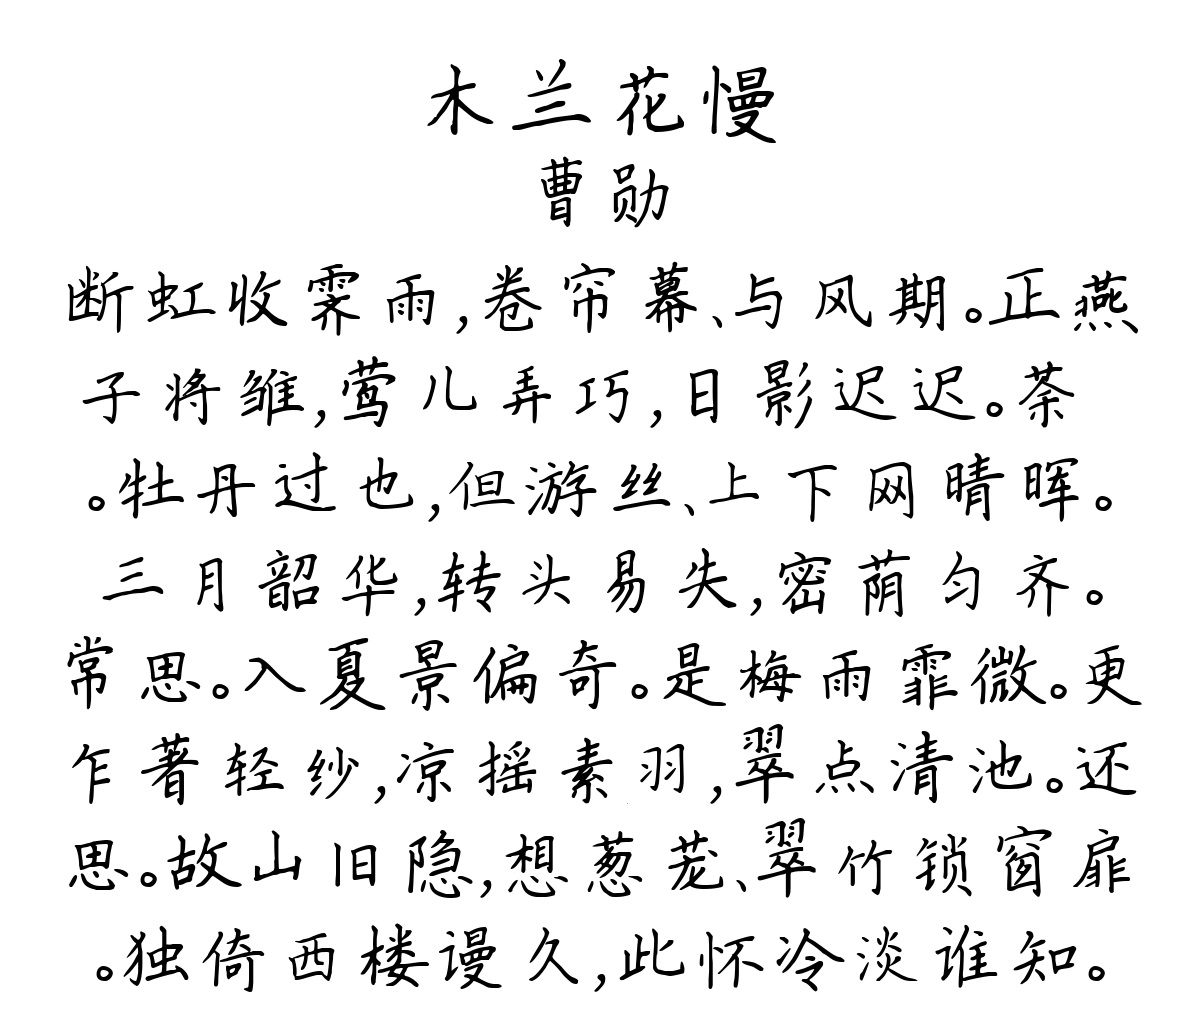 木兰花慢
曹勋
断虹收霁雨,卷帘幕、与风期。正燕
子将雏,莺儿弄巧,日影迟迟。荼
。牡丹过也,但游丝、上下网晴晖。
三月韶华,转头易失,密荫匀齐。
常思。入夏景偏奇。是梅雨霏微。更
乍著轻纱,凉摇素羽,翠点清池。还
思。故山旧隐,想葱茏、翠竹锁窗扉
。独倚西楼谩久,此怀冷淡谁知。